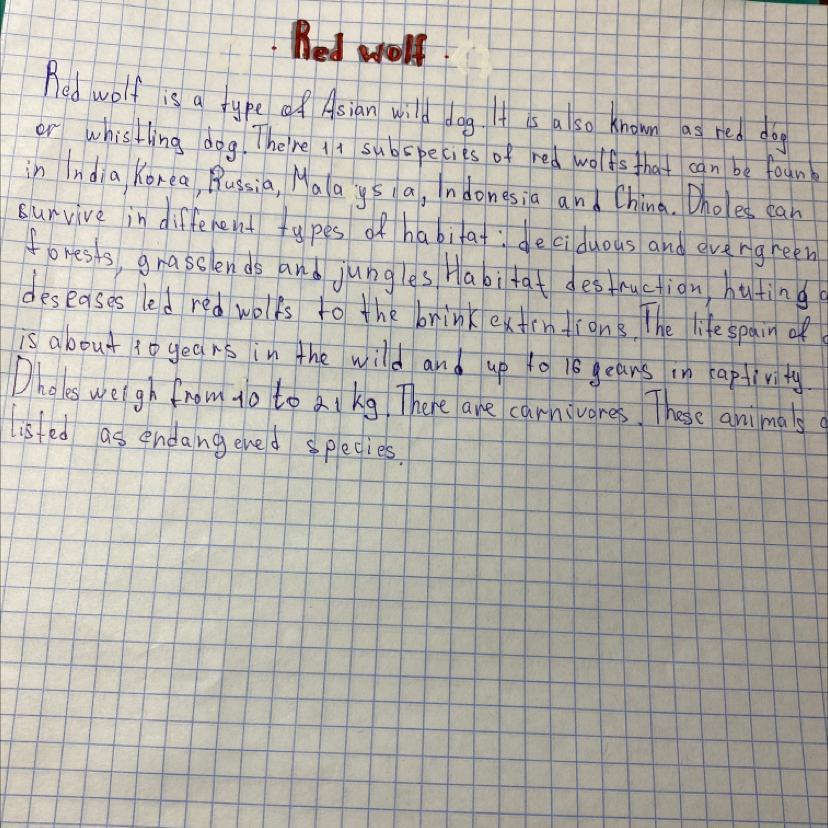 Red wolf
Red wolf is a type of Asian wild dog. It is also known as red dog
or whistling dog. There 11 subspecies of red wolfs that can be found
in India, Korea, Russia, Malaysia, Indonesia and China. Dholes can
survive in different types of habitat: deciduous and evergreen
forests, grasslends and jungles. Habitat destruction, huting
deseases led red wolfs to the brink extintions. The lifespain of
is about 10 years in the wild and up to 16 years in captivity.
Dholes weigh from 10 to 21 kg. There are carnivores. These animals
listed as endangered species.